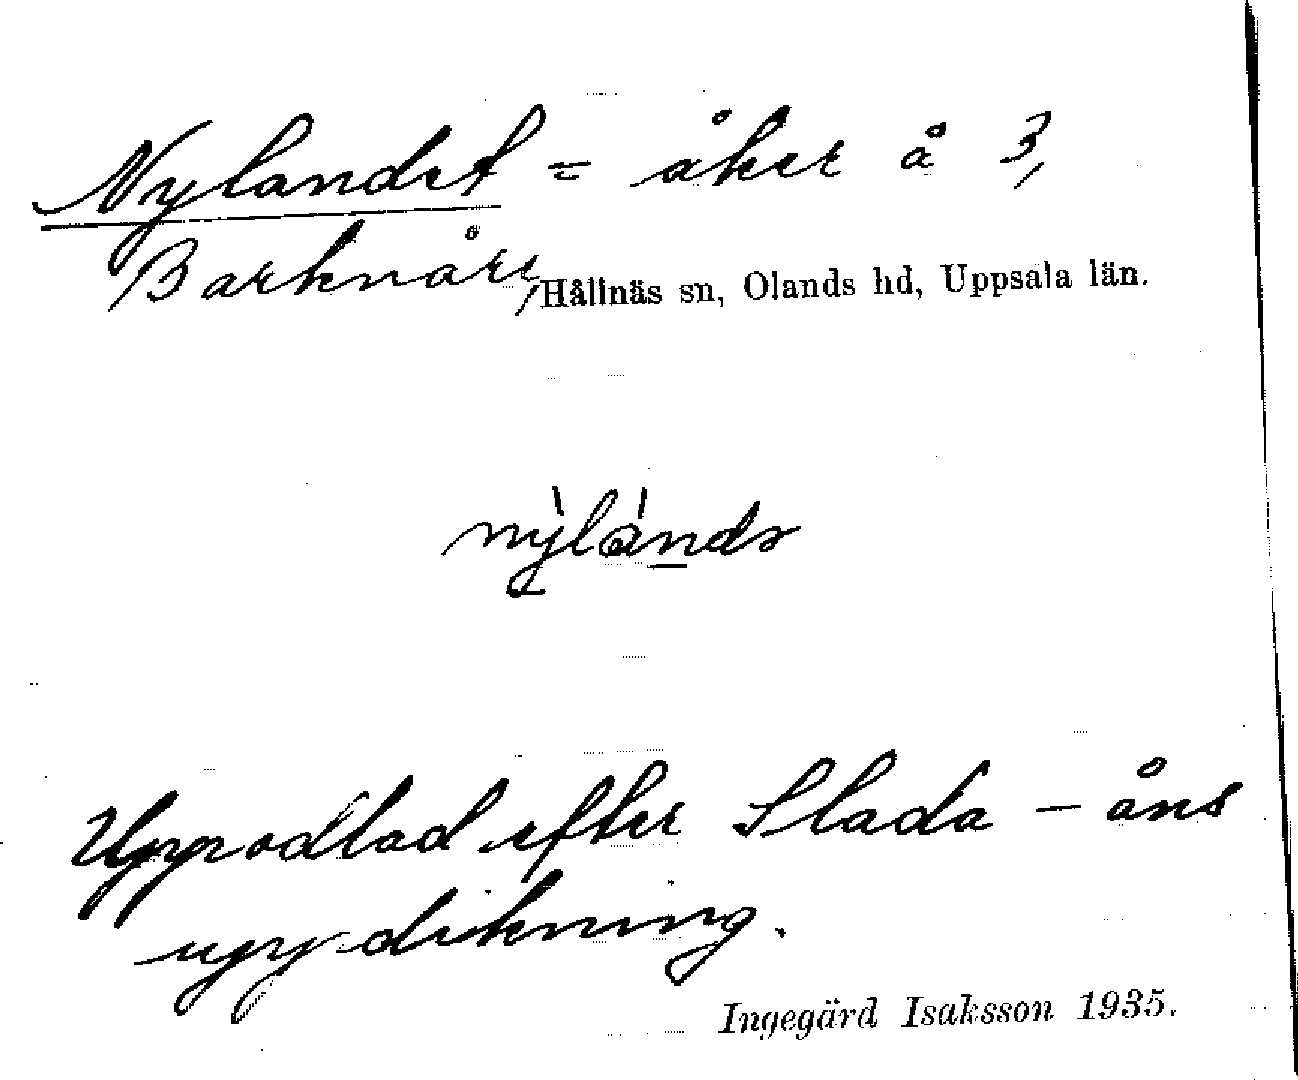 Nylandet = åker å 3,
Barknåre, Hållnäs sn, Olands hd, Uppsala län.
nỳ̠lán̠dɘ
Uppodlad efter Slada - åns
uppdikning.
Ingegärd Isaksson 1935.